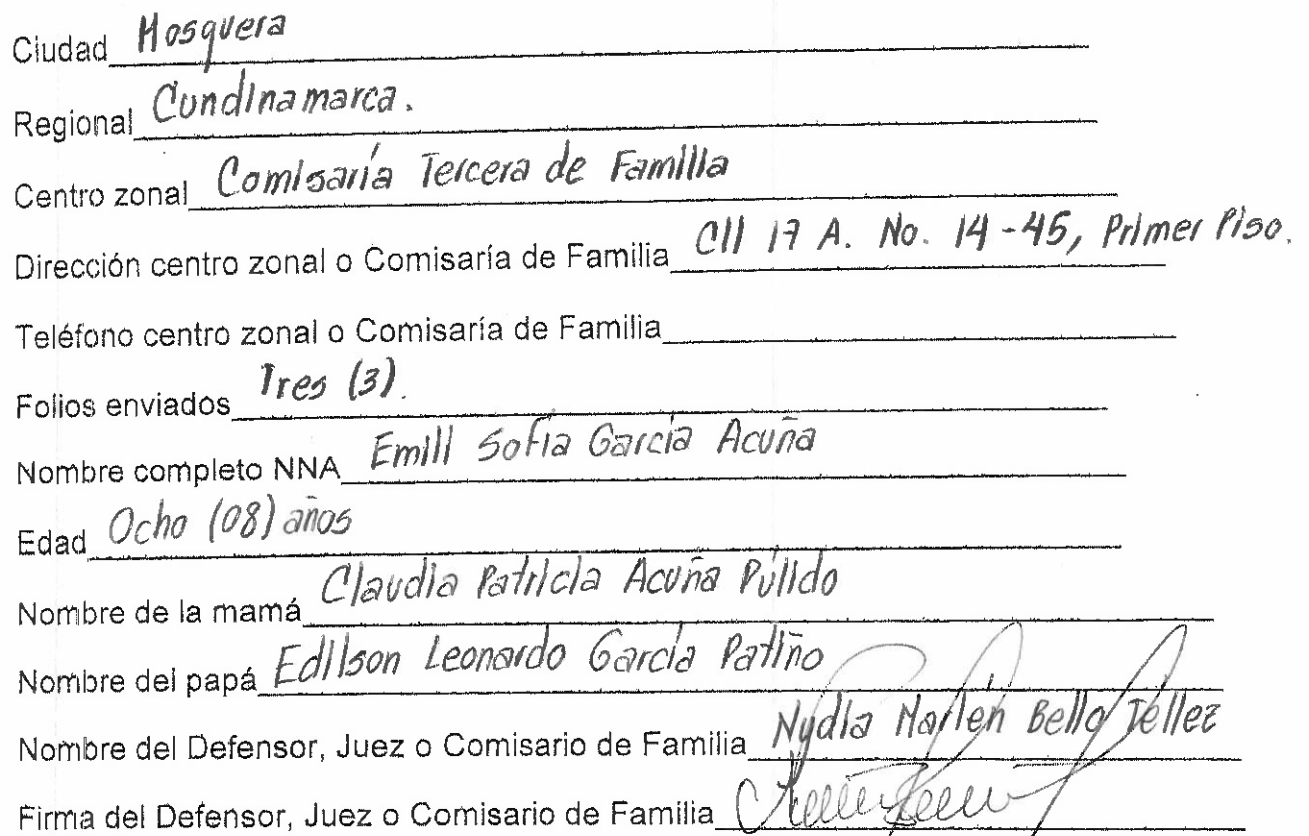 Ciudad Mosquera
Regional Cundinamarca.
Centro zonal Comisaría Tercera de Familia
Dirección centro zonal o Comisaría de Familia Cll 17 A. No. 14-45, Primer Piso.
Teléfono centro zonal o Comisaría de Familia
Folios enviados Tres (3).
Nombre completo NNA Emill Sofía García Acuña
Edad Ocho (08) años
Nombre de la mamá Claudia Patricia Acuña Púlido
Nombre del papá Edilson Leonardo García Patiño
Nombre del Defensor, Juez o Comisario de Familia Nydia Marlén Bello Téllez
Firma del Defensor, Juez o Comisario de Familia